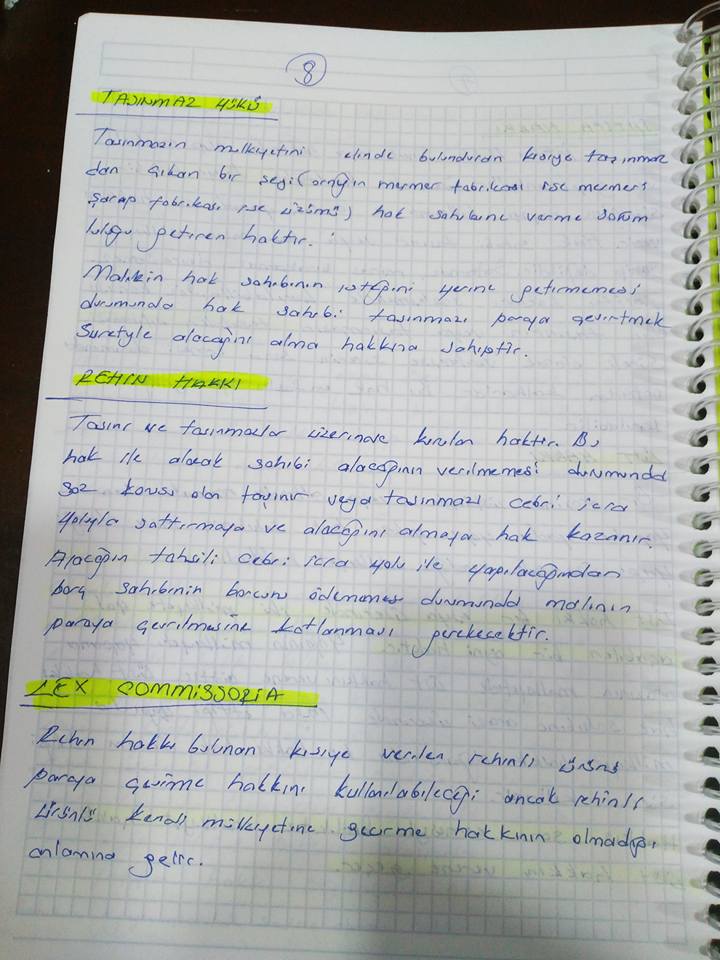 8
TAŞINMAZ YÜKÜ
Taşınmazın mülkiyetini elinde bulunduran kişiye taşınmaz
dan çıkan bir şeyi (örneğin mermer fabrikası ise mermeri
şarap fabrikası ise üzümü) hak sahibine verme sorum
luluğu getiren haktır.
Malikin hak sahibinin isteğini yerine getirmemesi
durumunda hak sahibi taşınmazı paraya çevirtmek
suretyle alacağını alma hakkına sahiptir.
REHİN HAKKI
Taşınır ve taşınmazlar üzerinde kurulan haktır. Bu
hak ile alacak sahibi alacağının verilmemesi durumunda
söz konusu olan taşınır veya taşınmazı cebri icra
yoluyla sattırmaya ve alacağını almaya hak kazanır.
Alacağın tahsili cebri icra yolu ile yapılacağından
borç sahibinin borcunu ödememesi durumunda malının
paraya çevrilmesine katlanması gerekecektir.
LEX COMMISSORIA
Rehin hakkı bulunan kişiye verilen rehinli ürünü
paraya çevirme hakkını kullanılabileceği ancak rehinli
ürünü kendi mülkiyetine geçirme hakkının olmadığı
anlamına gelir.